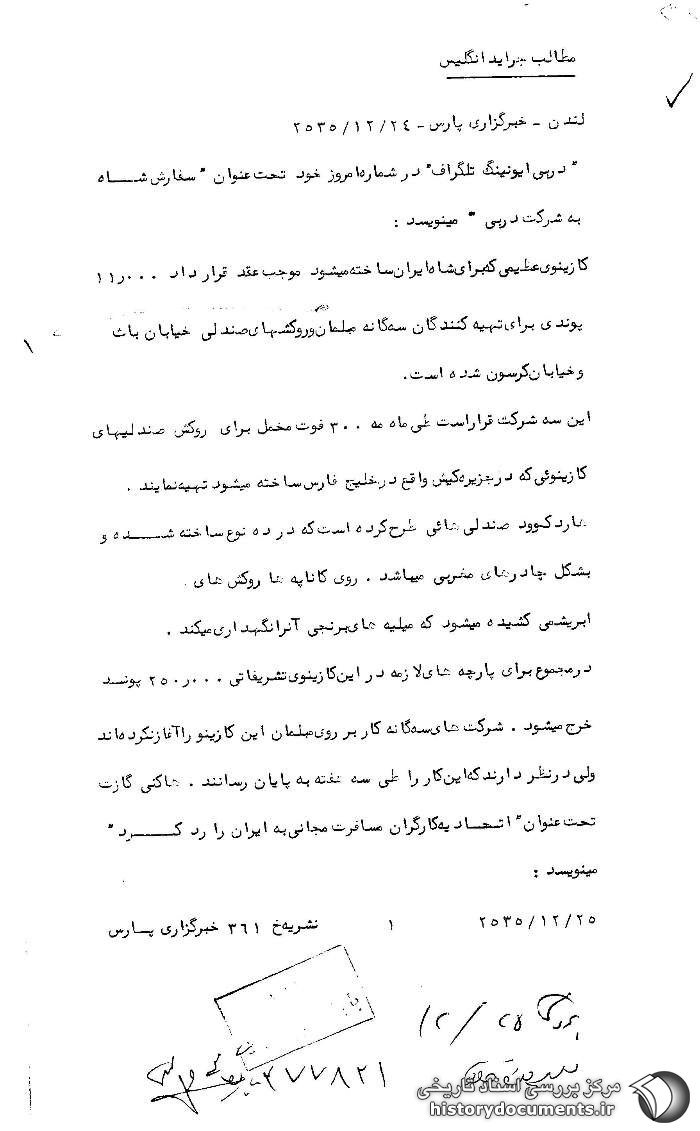 مطالب جراید انگلیس
لندن - خبرگزاری پارس - ۲۵۳۵/۱۲/۲٤
" دربی ایونینگ تلگراف" در شماره امروز خود تحت عنوان " سفارش شاه
به شرکت دربی " مینویسد :
کازینوی عظیمی که برای شاه ایران ساخته میشود موجب عقد قرار داد ۱۱ر۰۰۰
پوندی برای تهیه کنندگان سه گانه مبلمان و روکشهای صندلی خیابان باث
و خیابان کرسون شده است .
این سه شرکت قرار است طی ماه مه ۳۰۰ فوت مخمل برای روکش صندلیهای
کازینوئی که در جزیره کیش واقع در خلیج فارس ساخته میشود تهیه نمایند .
هارد کوود صندلی هائی طرح کرده است که در ده نوع ساخته شده و
بشکل چادرهای مغربی میباشد . روی کاناپه ها روکش های
ابریشمی کشیده میشود که میلیه های برنجی آنرا نگهداری میکند .
در مجموع برای پارچه های لازمه در این کازینوی تشریفاتی ۲۵۰ر۰۰۰ پوند
خرج میشود . شرکت های سه گانه کار بر روی مبلمان این کازینو را آغاز نکرده اند
ولی در نظر دارند که این کار را طی سه هفته به پایان رسانند . هاکنی گازت
تحت عنوان " اتحادیه کارگران مسافرت مجانی به ایران را رد کرد "
مینویسد :
۲۵۳۵/۱۲/۲۵ ۱ نشریه خ ۳۶۱ خبرگزاری پارس
۱۲/۲۵
۳۷۷۸۲۱
مرکز بررسی اسناد تاریخی
historydocuments.ir